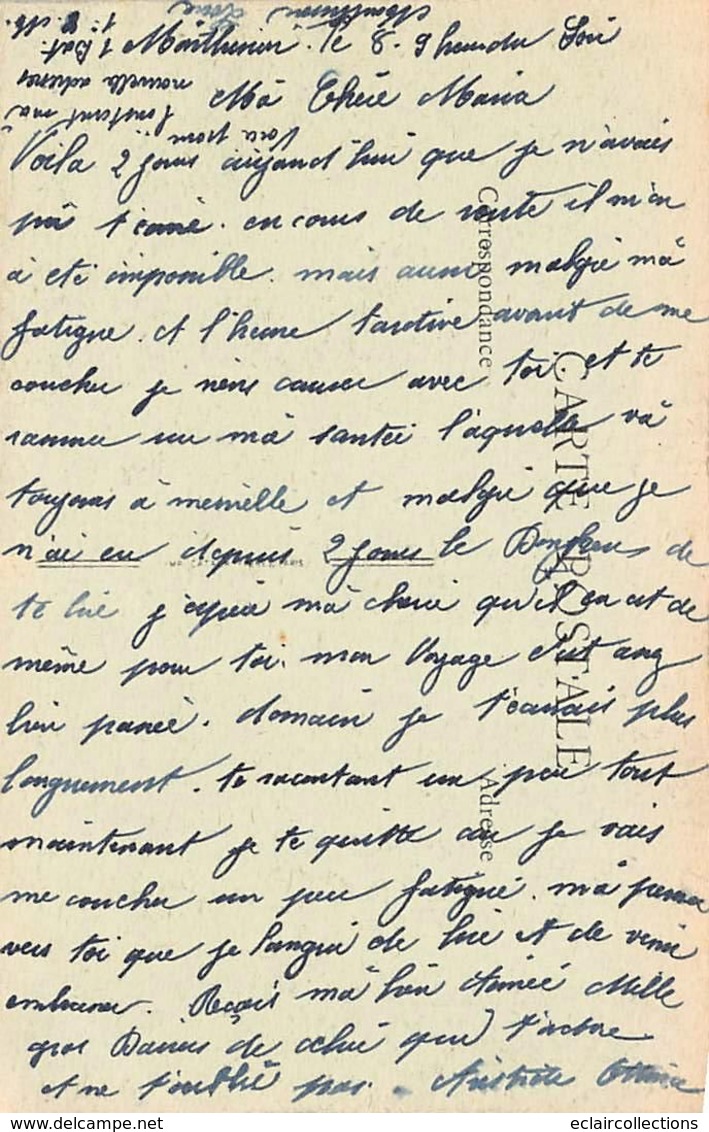 Montluçon. le 8. 9 heures du Soir
Mà Chère Maria
Voila 2 jours aujourd'hui que je n'avais
pas t'ecrire. en cours de route il m'en
à eté impossible. mais aussi malgré mà
fatigue. et l'heure tardive avant de me
coucher je viens causer avec toi. et te
rassurer sur mà santée l'aquelle và
toujours à merveille et malgré que je
n'ai eu depuis 2 jours le Bonheur de
te lire j'espère mà cherie qu'il en est de
même pour toi. mon Voyage s'est assez
bien passé. domain je t'ecrirais plus
longuement. te racontant un peu tout
maintenant je te quitte car je vais
me coucher un peu fatigué. mà pensée
vers toi que je langui de lire et de venir
embrasser. Reçois mà bien Aimée Mille
gros Baisers de celui qui t'adore
et ne t'oublié pas. Aristide
Voici pour
l'instant mà
nouvelle adresse
1 Bat.
Correspondance
CARTE POSTALE
Adresse
eclaircollections